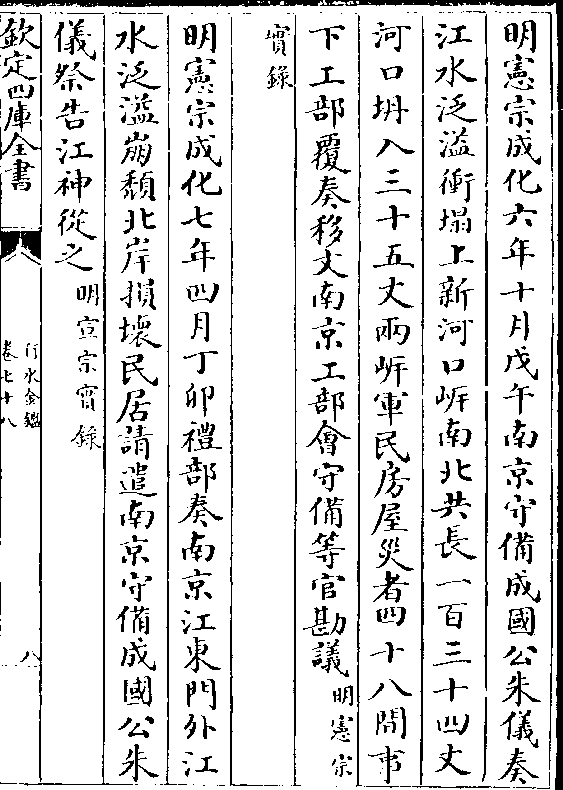 明憲宗成化六年十月戊午南京守備成國公朱儀奏
江水泛溢衝塌上新河口㟁南北共長一百三十四丈
河口坍入三十五丈兩㟁軍民房屋災者四十八間事
下工部覆奏移文南京工部會守備等官勘議明憲宗
實錄
明憲宗成化七年四月丁卯禮部奏南京江東門外江
水泛溢崩頽北岸損壞民居請遣南京守備成國公朱
儀祭告江神從之明宣宗實錄
欽定四庫全書
行水金鑑
卷七十八
八